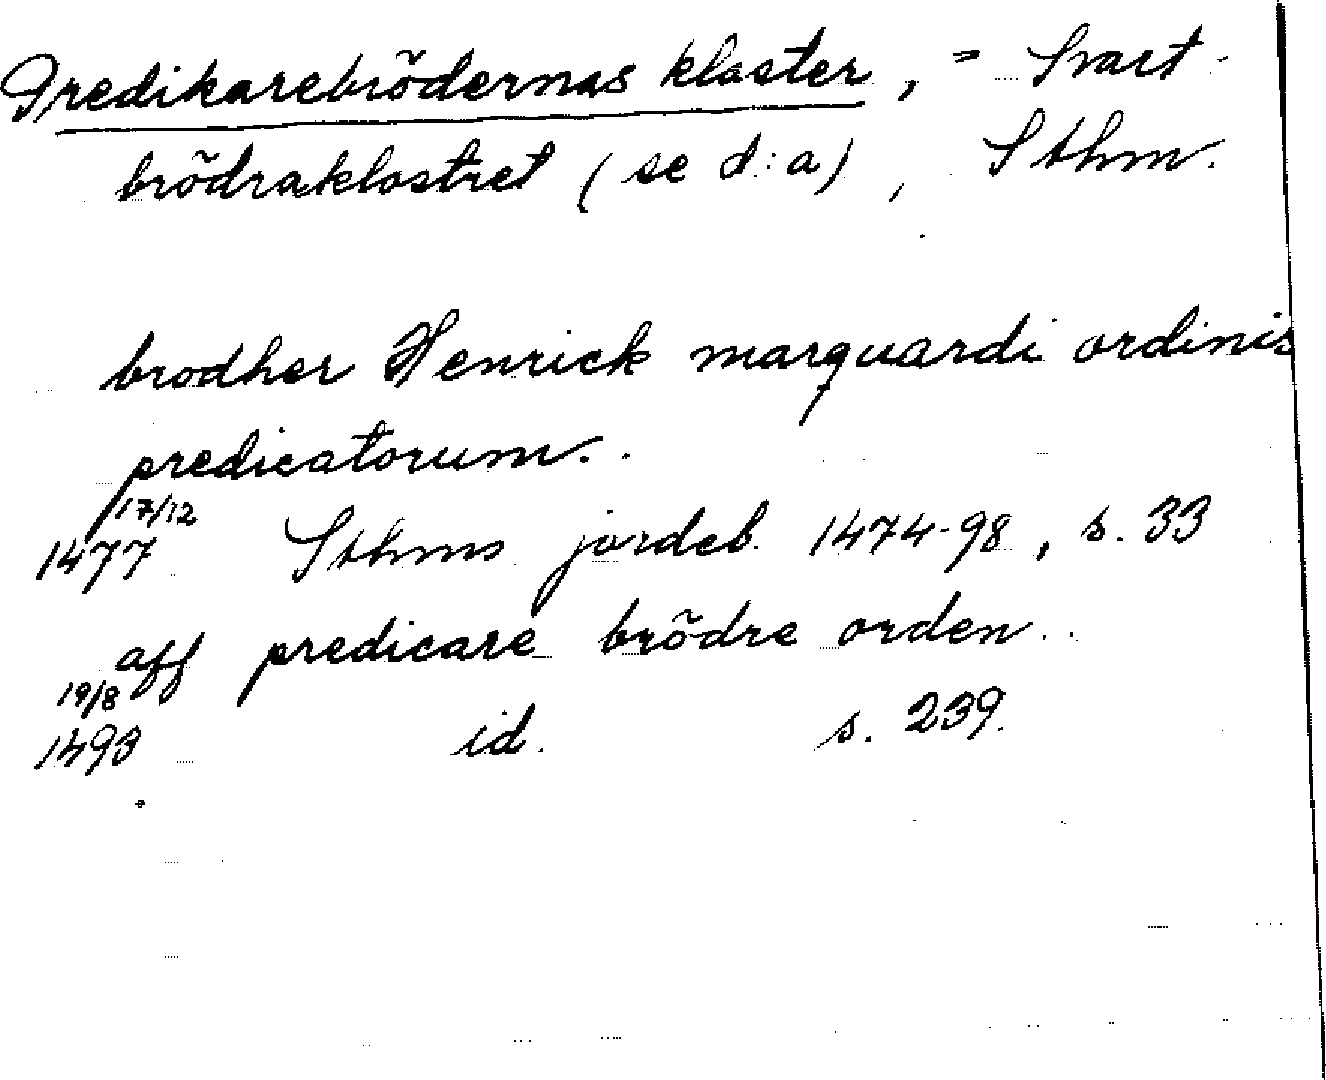 Predikarebrödernas kloster, = Svart-
brödraklostret (se d:a), Sthm.
brodher Henrick marquardi ordinis
predicatorum.
17/12
1477 Sthms jordeb. 1474-98, s. 33
aff predicare brödre orden.
19/8
1493 id. s. 239.